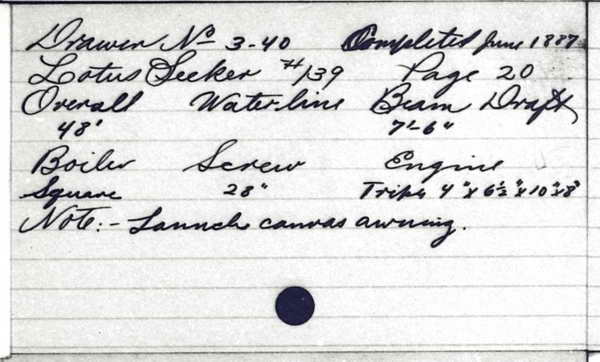 Drawer No 3-40 Completed June 1887
Lotus Seeker #139 Page 20
Overall Waterline Beam Draft
48' 7'-6"
Boiler Screw Engine
Square 28" Triple 4"x6½"x10"x8"
Note:- Launch canvas awning.